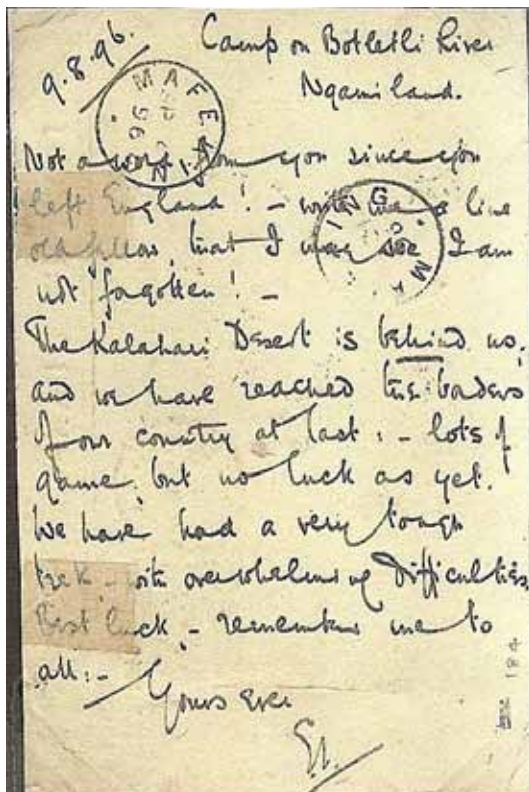 9.8.96.
Camp on Botletli River
Ngamiland.
MAFEKING
Not a word from you since you
left England! - write me a line
old fellow, that I may see I am
not forgotten! -
The Kalahari Desert is behind us,
and we have reached the borders
of our country at last: - lots of
game, but no luck as yet.
We have had a very tough
trek - with overwhelming difficulties
Best luck, - remember me to
all: -
Yours Ever
184